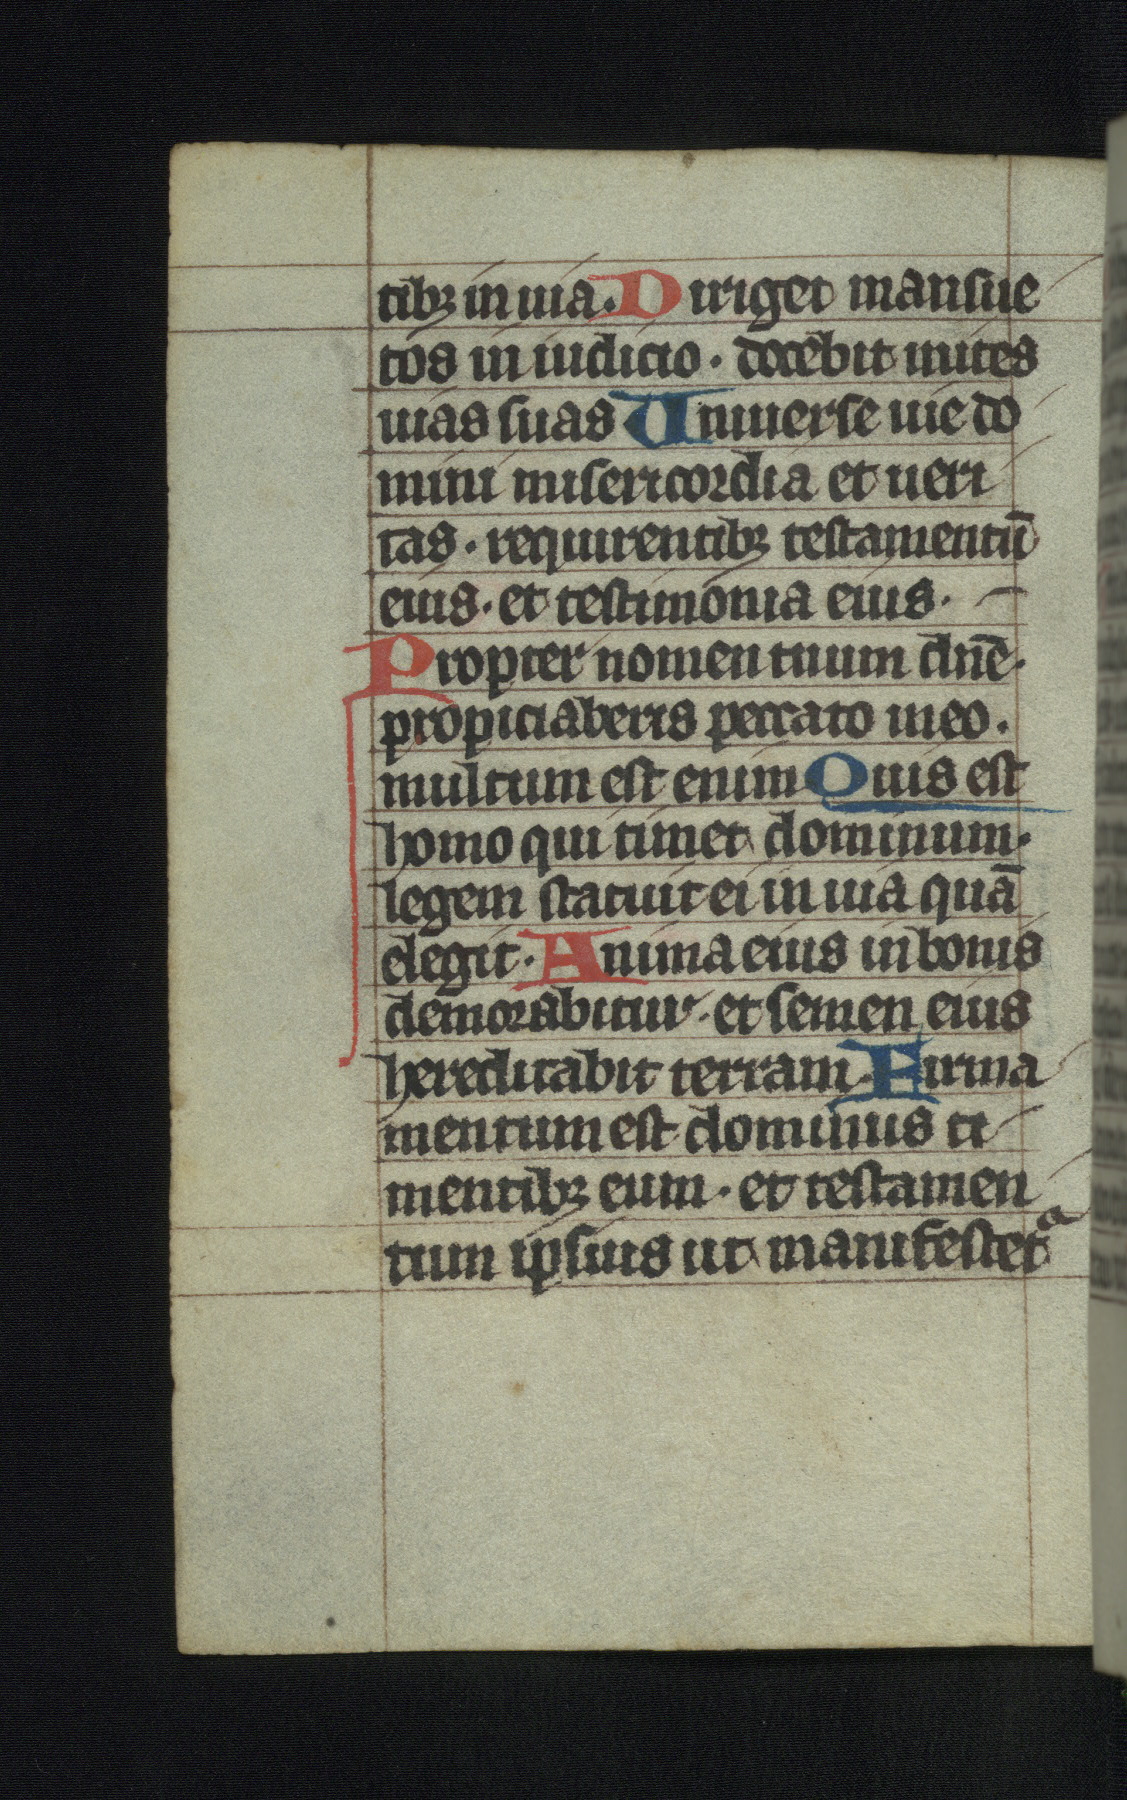 tibꝫ in uia. Diriget mansue
tos in iudicio. docebit mites
uias suas Uniuerse uie do
mini misericordia et ueri
tas. requirentibꝫ testamentū
eius. et testimonia eius.
Propter nomen tuum dn̄e.
propiciaberis peccato meo.
multum est enim Quis est
homo qui timet dominum.
legem statuit ei in uia quā
elegit. Anima eius in bonis
demorabitur. et semen eius
hereditabit terram. Firma
mentum est dominus ti
mentibꝫ eum. et testamen
tum ipsius ut manifestetᵃ